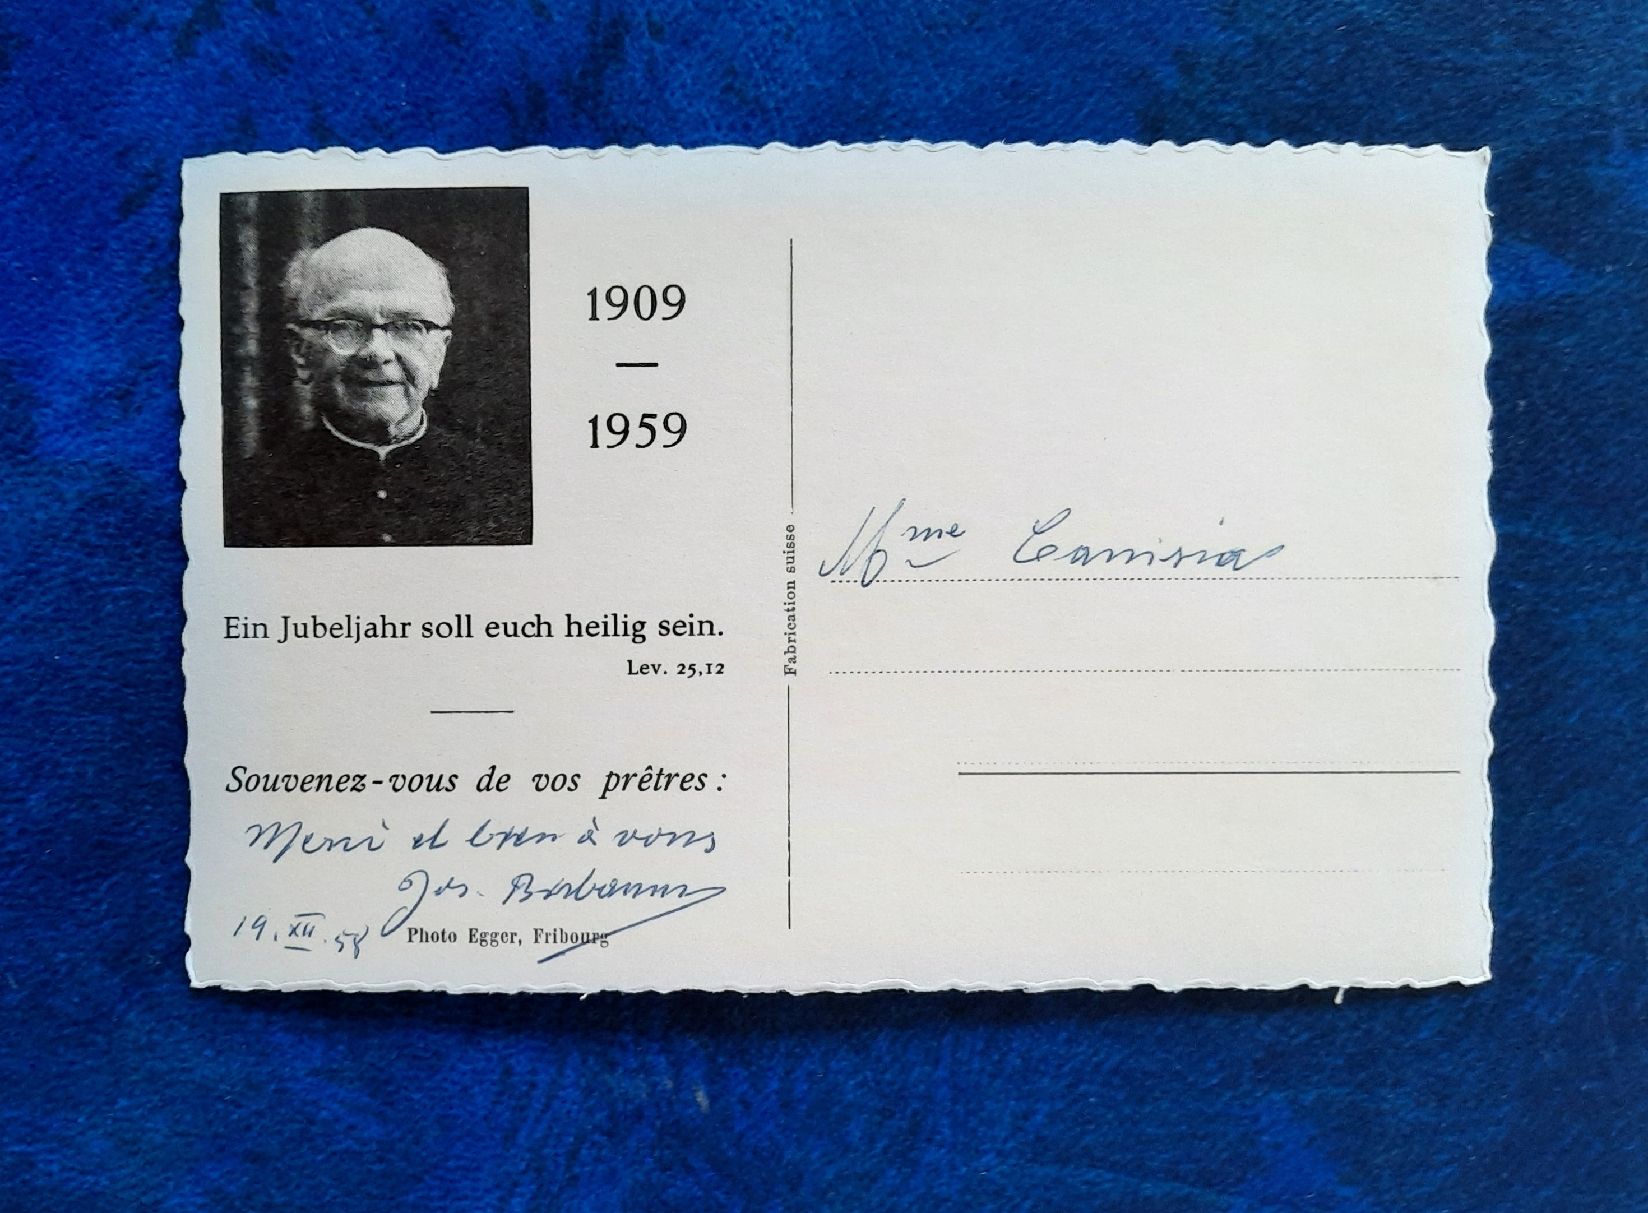 1909
—
1959
Ein Jubeljahr soll euch heilig sein.
Lev. 25,12
Souvenez-vous de vos prêtres :
Merci et bien à vous
Jos.
19. XII. 58
Photo Egger, Fribourg
Fabrication suisse
Mme Canisia